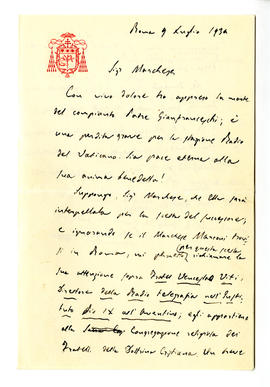 Roma 9 Luglio 1934
Sig. Marchese
Con vivo dolore ho appreso la morte
del compianto Padre Gianfranceschi; è
una perdita grave per la stazione Radio
del Vaticano. La pace eterna alla
sua anima benedetta!
Suppongo, Sig. Marchese, che Ella sarà
interpellato per la scelta del successore,
e ignorando se il Marchese Marconi trovi
si in Roma, mi permetto (per questa scelta) richiamare la
sua attenzione sopra Fratel Vit,
Direttore della Radio telegrafia nell'Isti
tuto Pio IX all'Aventino; egli appartiene
alla Congregazione religiosa dei
Fratelli della Dottrina Cristiana. Un breve